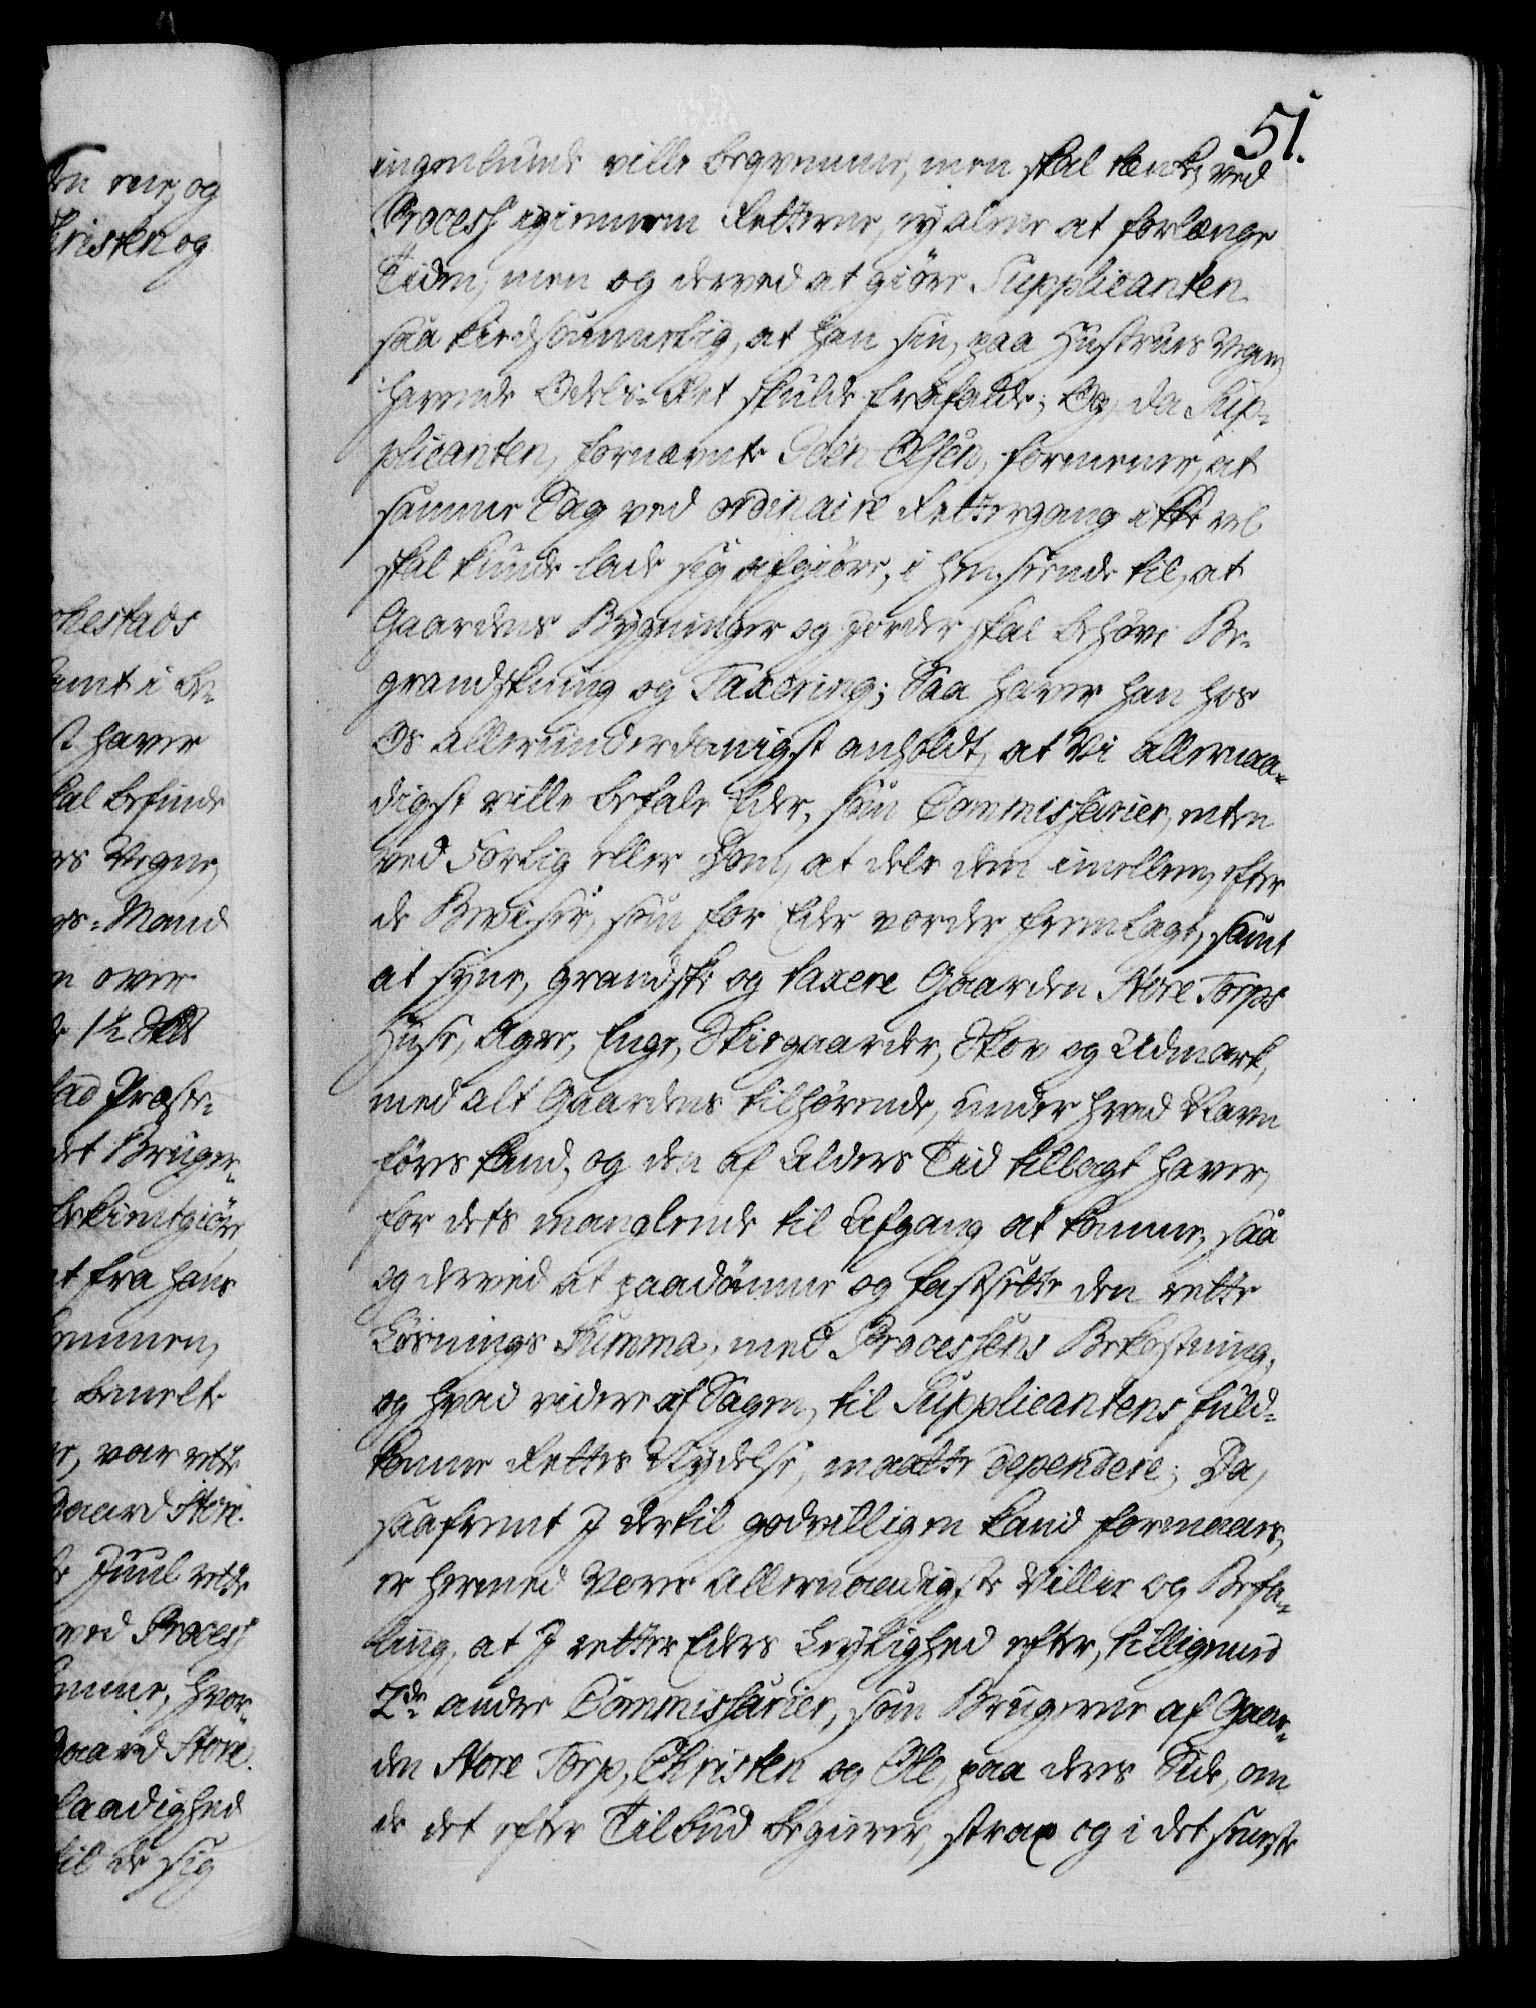 51.
ingenlunde ville beqvemme, men skal tænke ved
Process igiennem Retterne, ej alene at forlænge
Tiden, men og derved at giøre Supplicanten
saa kiedsommelig, at han sin, paa Hustrues Vegne,
havende Odels-Ret skulde frafalde; Og, da Sup-
plicanten, fornævnte Joen Olsen, formener, at
samme Sag ved ordinaire Rettergang ikke vel
skal kunde lade sig afgiøre, i Henseende til, at
Gaardens Bygninger og Jorder skal behøve Be-
grandskning og Taxering; Saa haver han hos
Os allerunderdanigst anholdt, at Vi allernaa-
digst ville befale Eder, som Commissarier, enten
ved Forlig eller Dom, at dele dem imellem, efter
de Beviser, som for Eder vorder fremlagt, samt
at syne, grandske og taxere Gaarden Store Torps
Huse, Agre, Enge, Skiegaarder, Skov og Udmark,
med alt Gaardens tilhørende, under hvad Navn
føres kand, og den af Alders Tid tillagt haver,
for dets manglende til Afgang at komme, saa
og derved at paadømme og fastsætte den rette
Løsnings Summa, med Processens Bekostning,
og hvad videre af Sagen, til Supplicantens fuld-
komne Rettes Nydelse, maatte dependere; Da,
saafremt I dertil godvilligen kand formaaes,
er hermed Vores allernaadigste Villie og Befa-
ling, at I retter Eders Leylighed efter, tilligemed
2de andre Commissarier, som Brugerne af Gaar-
den Store Torp, Christen og Ole, paa deres Side, om
de det efter Tilbud begierer, strax og i det seneste
en eene, og
Christen og
kestads
amt i be-
st haver
kal befinde
es Vegne,
gs-Mand
n over
1½ Skd
lad Præste-
det Bruger-
bekiendtgiøre
t fra hans
kommen,
bemelte
e, var rette
Gaard Store
e Juul rette
ved Process
komme, hvor-
Gaard Store
Naadighed
til de sig